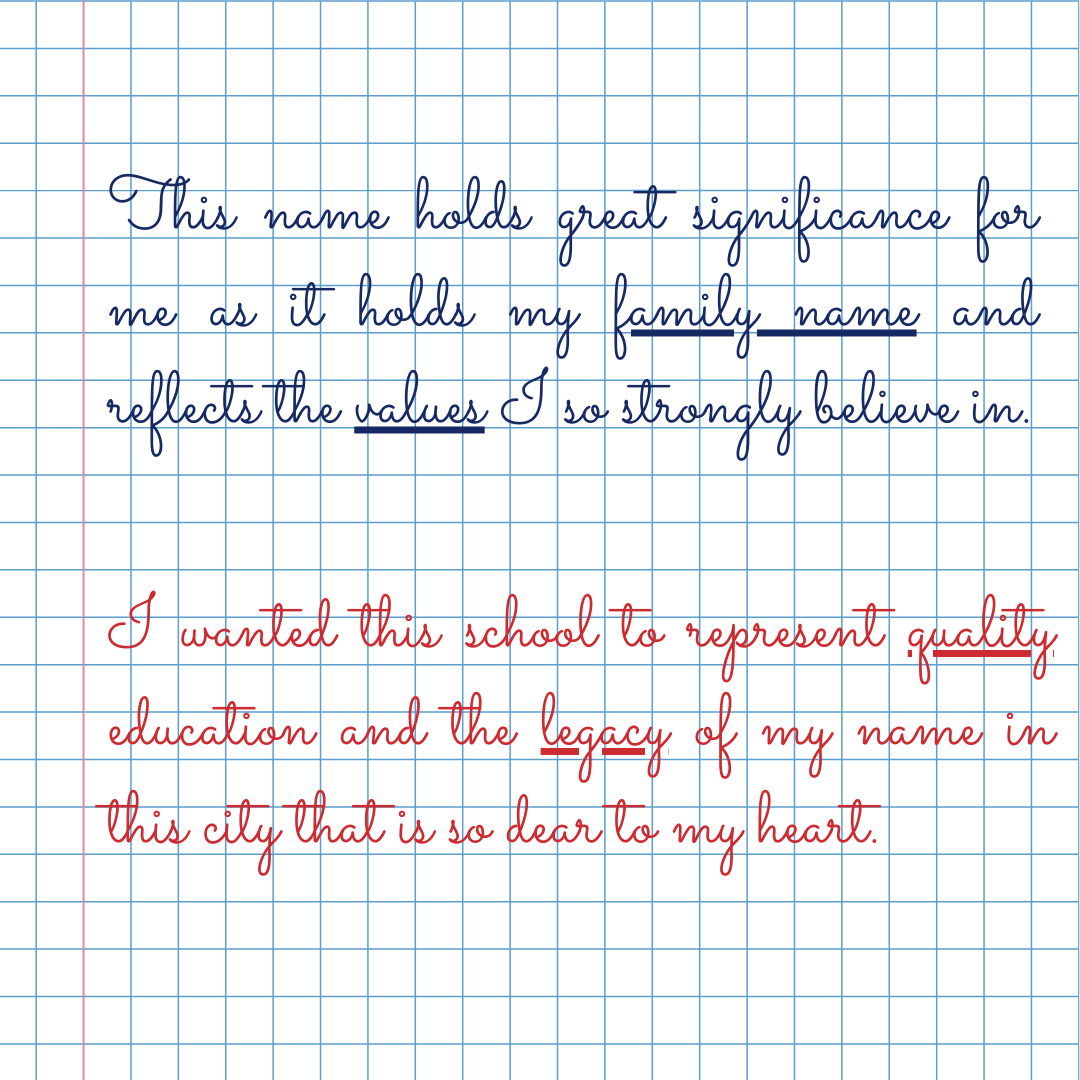 This name holds great significance for
me as it holds my family name and
reflects the values I so strongly believe in.
I wanted this school to represent quality
education and the legacy of my name in
this city that is so dear to my heart.